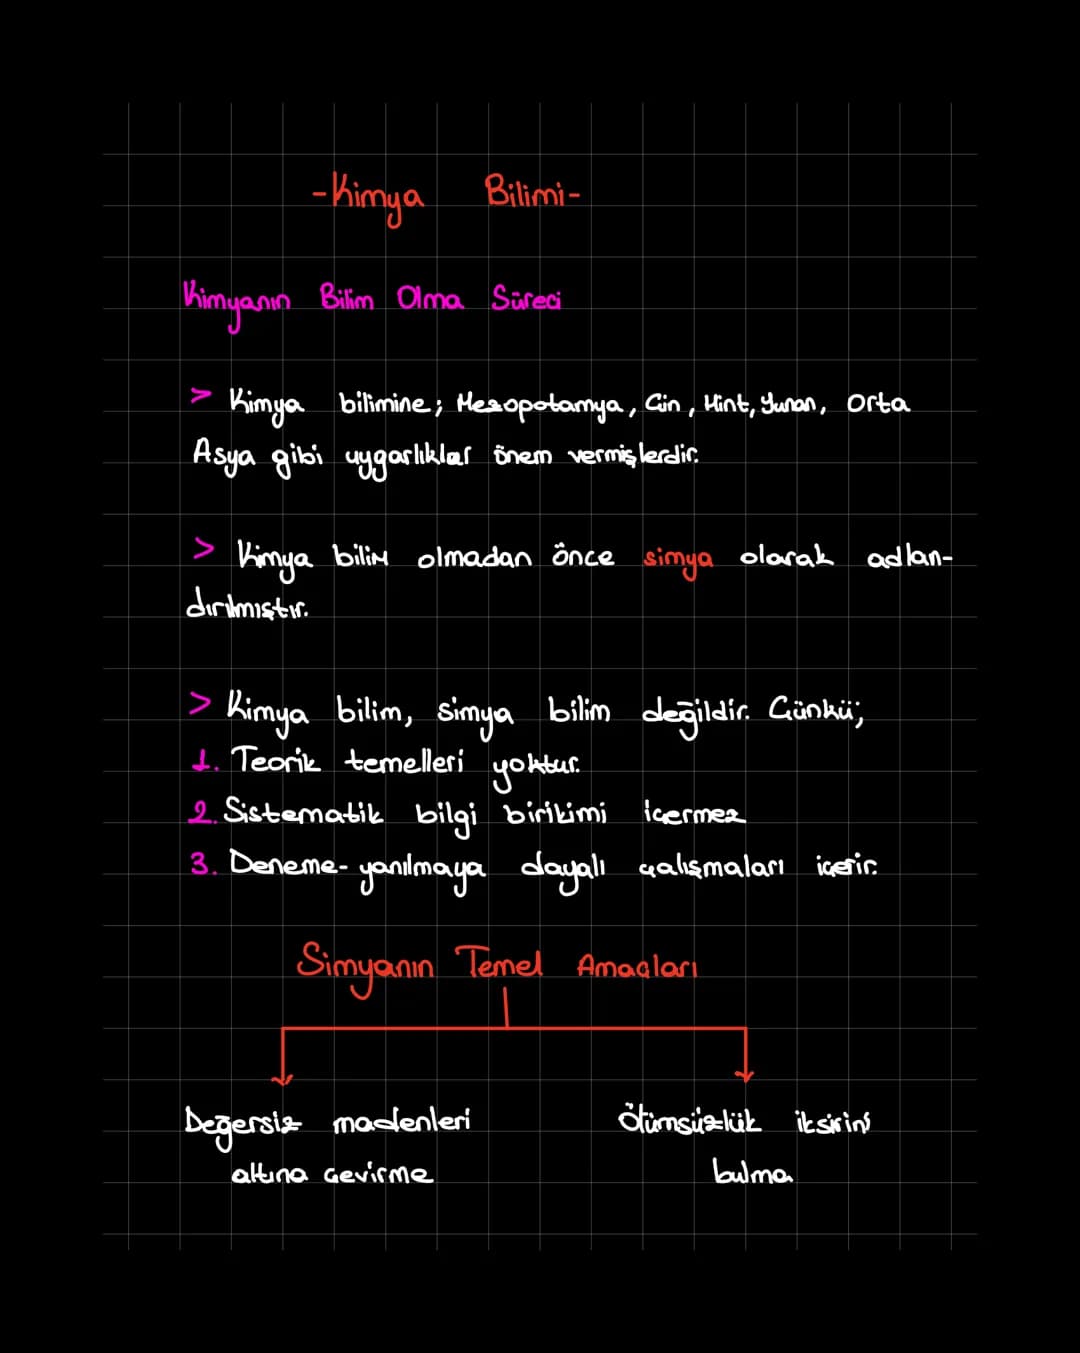 -Kimya Bilimi-
Kimyanın Bilim Olma Süreci
> Kimya bilimine; Mezopotamya, Çin, Hint, Yunan, Orta
Asya gibi uygarlıklar önem vermişlerdir.
> Kimya bilim olmadan önce simya olarak adlan-
dırılmıştır.
> Kimya bilim, simya bilim değildir. Çünkü;
1. Teorik temelleri yoktur.
2. Sistematik bilgi birikimi içermez
3. Deneme-yanılmaya dayalı çalışmaları içerir.
Simyanın Temel Amaçları
Değersiz madenleri
altına çevirme
Ölümsüzlük iksirini
bulma